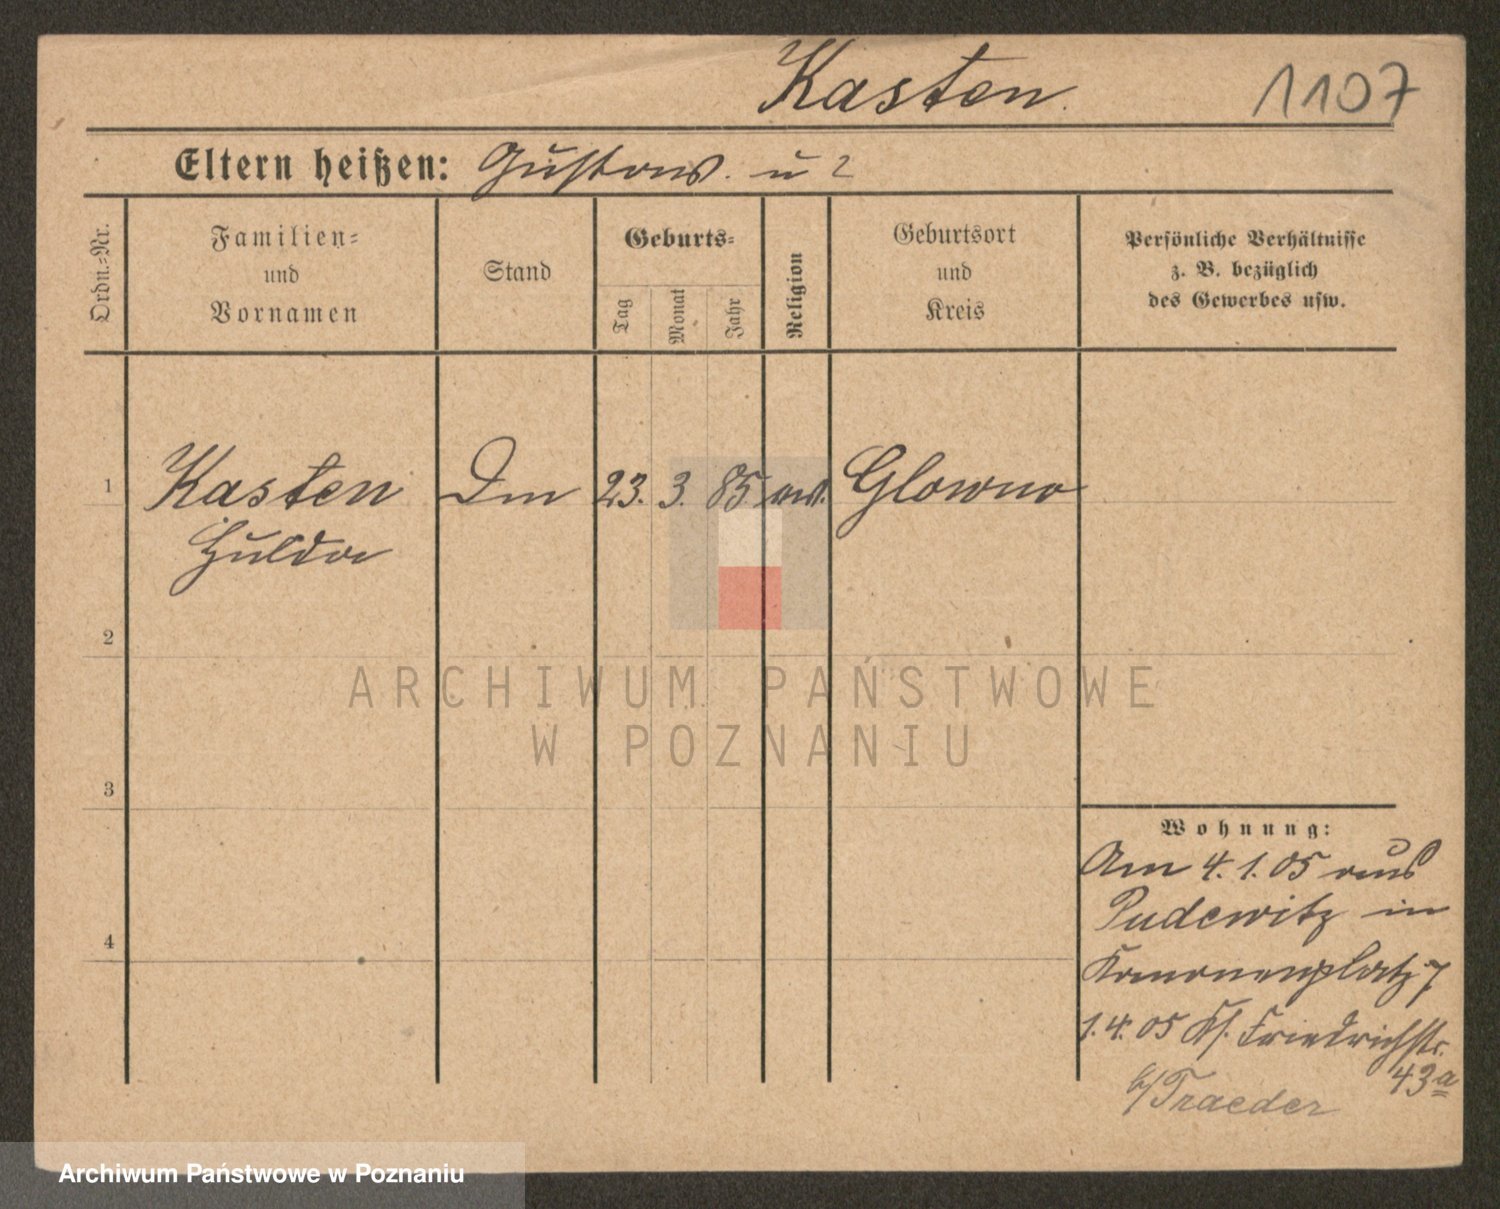 Kasten.
1107
Eltern heißen: Gustav u ?
Ordn.-Nr.
Familien-
und
Vornamen
Stand
Geburts-
Tag
Monat
Jahr
Religion
Geburtsort
und
Kreis
Persönliche Verhältnisse
z. B. bezüglich
des Gewerbes usw.
1
Kasten
Hulda
23. 3. 85
Glowno
2
3
4
Wohnung:
Am 4. 1. 05 aus
Pudewitz in
Kanonenplatz 7
1. 4. 05 Friedrichstr.
43a
b/Traeder
ARCHIWUM PAŃSTWOWE
W POZNANIU
Archiwum Państwowe w Poznaniu